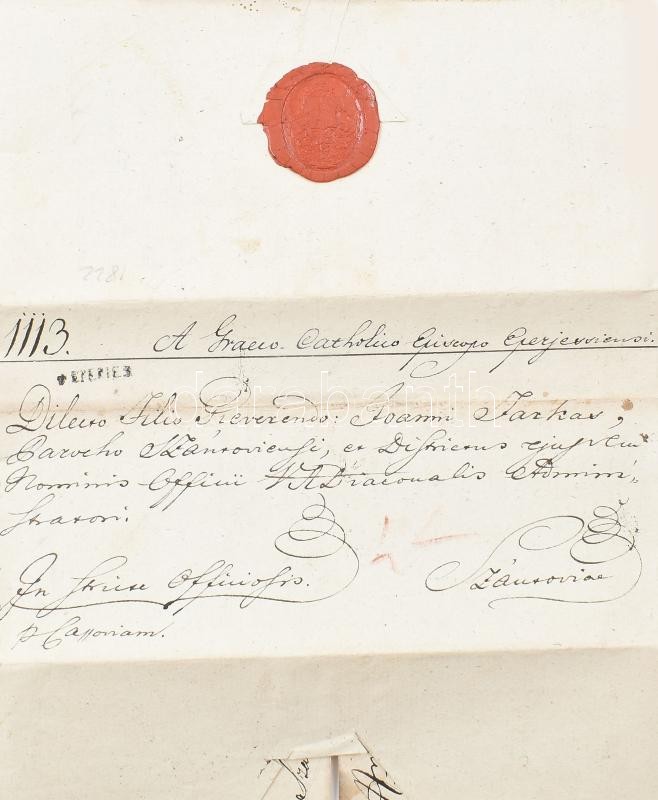 1113. A Graeco Catholico Episcopo Eperjessiensi.
EPERIES
Dilecto Filio Reverendo: Joanni Farkas,
Parocho Szántoviensi, et Districtus ejusdem
Nominis Officii VADiaconalis Admini-
stratori.
In Stricte Officiosis. Szántoviae
p Cassoviam.